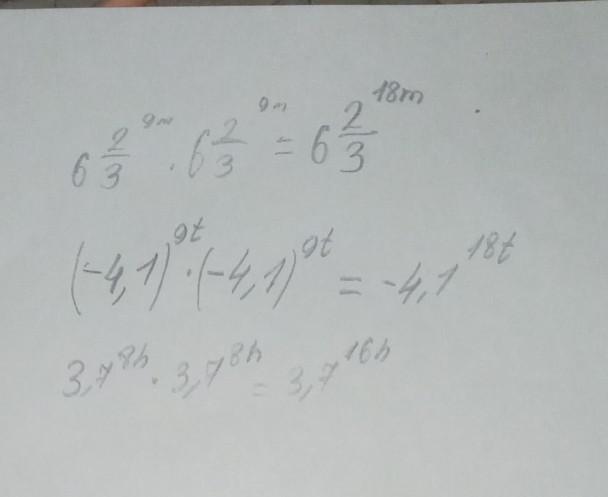 6 2/3 ^9m · 6 2/3 ^9m = 6 2/3 ^18m
(-4,1)^9t · (-4,1)^9t = -4,1^18t
3,7^8h · 3,7^8h = 3,7^16h